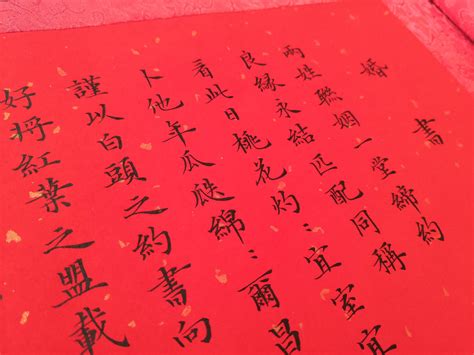 婚書
兩姓聯姻一堂締約
良緣永結匹配同稱
看此日桃花灼:宜室宜
卜他年瓜瓞綿:爾昌
謹以白頭之約書向
好將紅葉之盟載